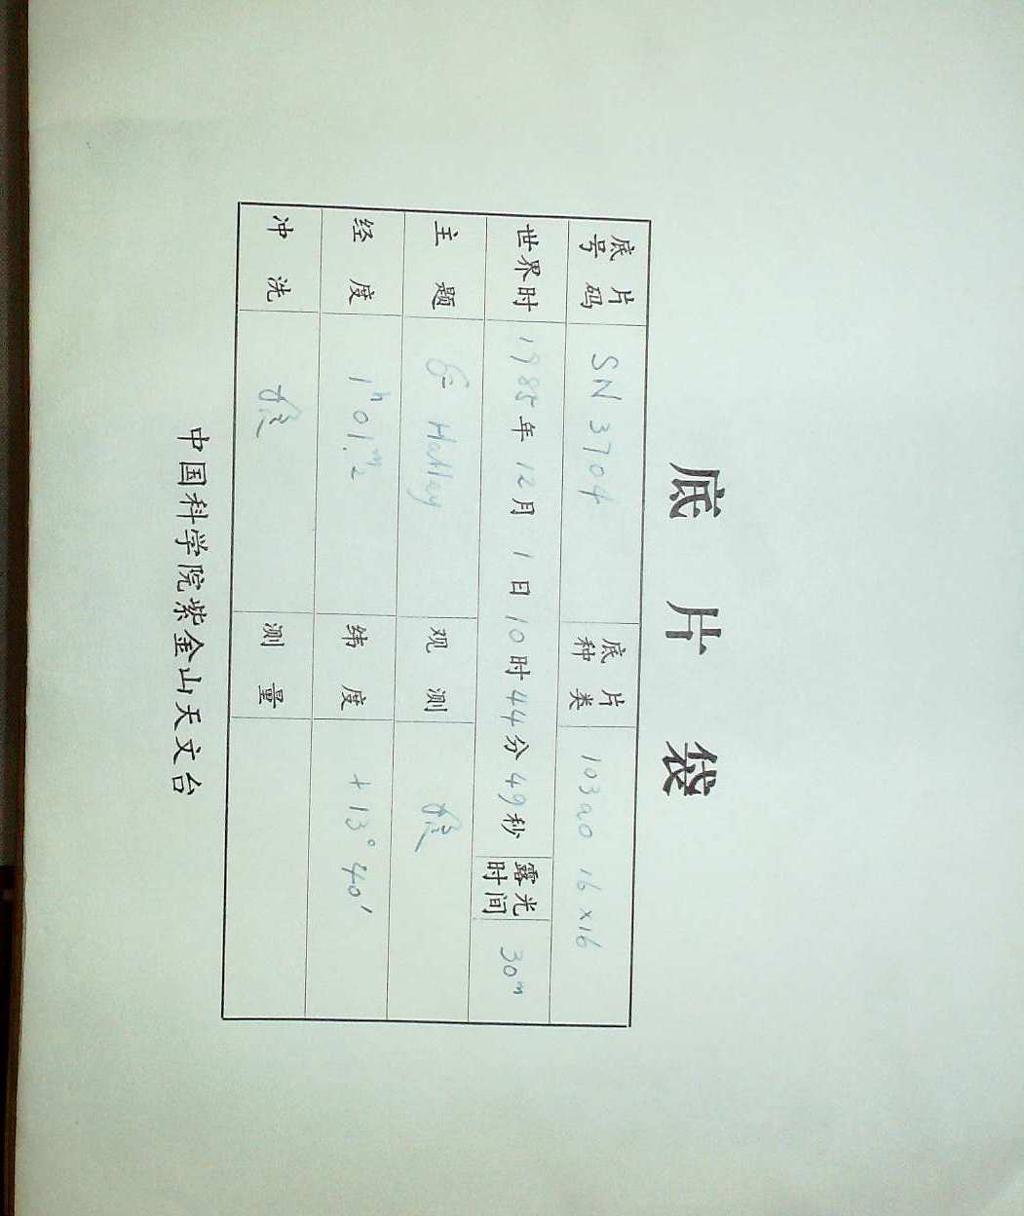 底片袋
底片号码 SN 3704 底片种类 103aO 16×16
世界时 1985年12月1日10时44分49秒 露光时间 30m
主题 Halley 观测
经度 1h01m.2 纬度 +13°40′
冲洗 测量
中国科学院紫金山天文台